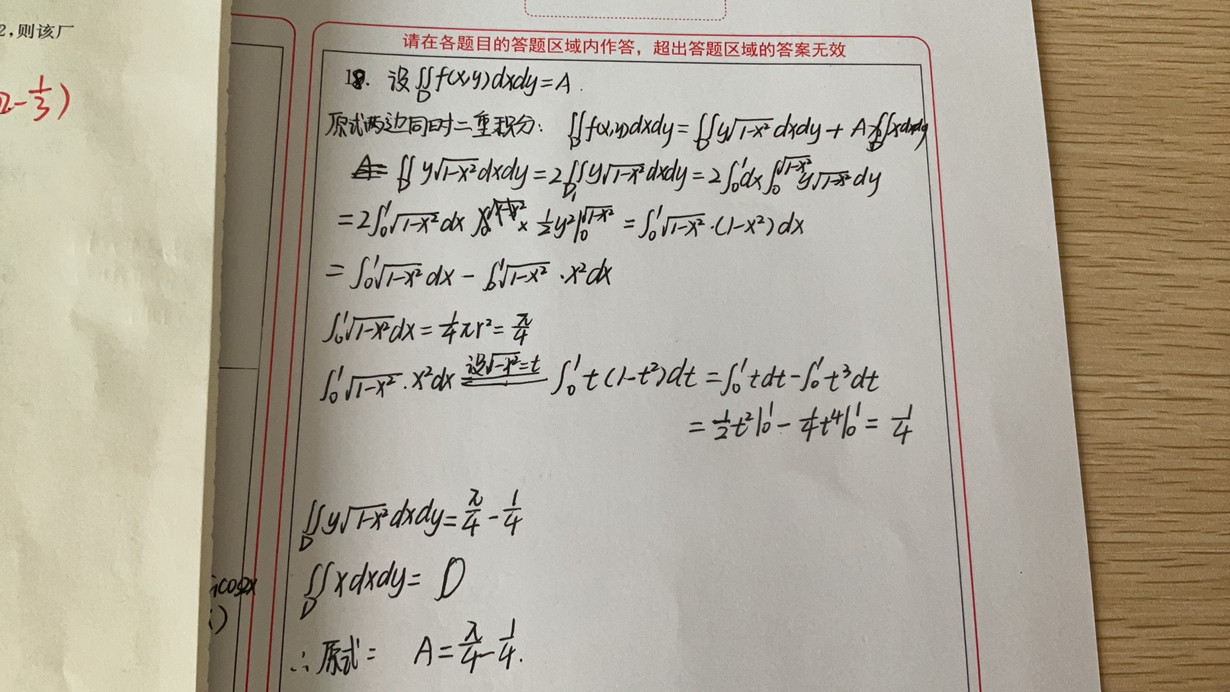 2,则该厂
2-\frac{1}{3})
请在各题目的答题区域内作答，超出答题区域的答案无效
18. 设∬_D f(x,y)dxdy=A.
原式两边同时二重积分: ∬_D f(x,y)dxdy=∬_D y√(1-x²) dxdy + A∬_D xdxdy
∬_D y√(1-x²)dxdy=2∬_{D₁} y√(1-x²)dxdy=2∫₀¹dx∫₀^{√(1-x²)} y√(1-x²)dy
=2∫₀¹√(1-x²)dx × ½y²|₀^{√(1-x²)} = ∫₀¹√(1-x²)·(1-x²)dx
=∫₀¹√(1-x²)dx - ∫₀¹√(1-x²)·x²dx
∫₀¹√(1-x²)dx=¼πr²=π/4
∫₀¹√(1-x²)·x²dx 设√(1-x²)=t ∫₀¹t(1-t²)dt=∫₀¹tdt-∫₀¹t³dt
=½t²|₀¹-¼t⁴|₀¹=¼
∬_D y√(1-x²)dxdy=π/4-1/4
∬_D xdxdy=0
∴原式= A=π/4-1/4.
cos2x